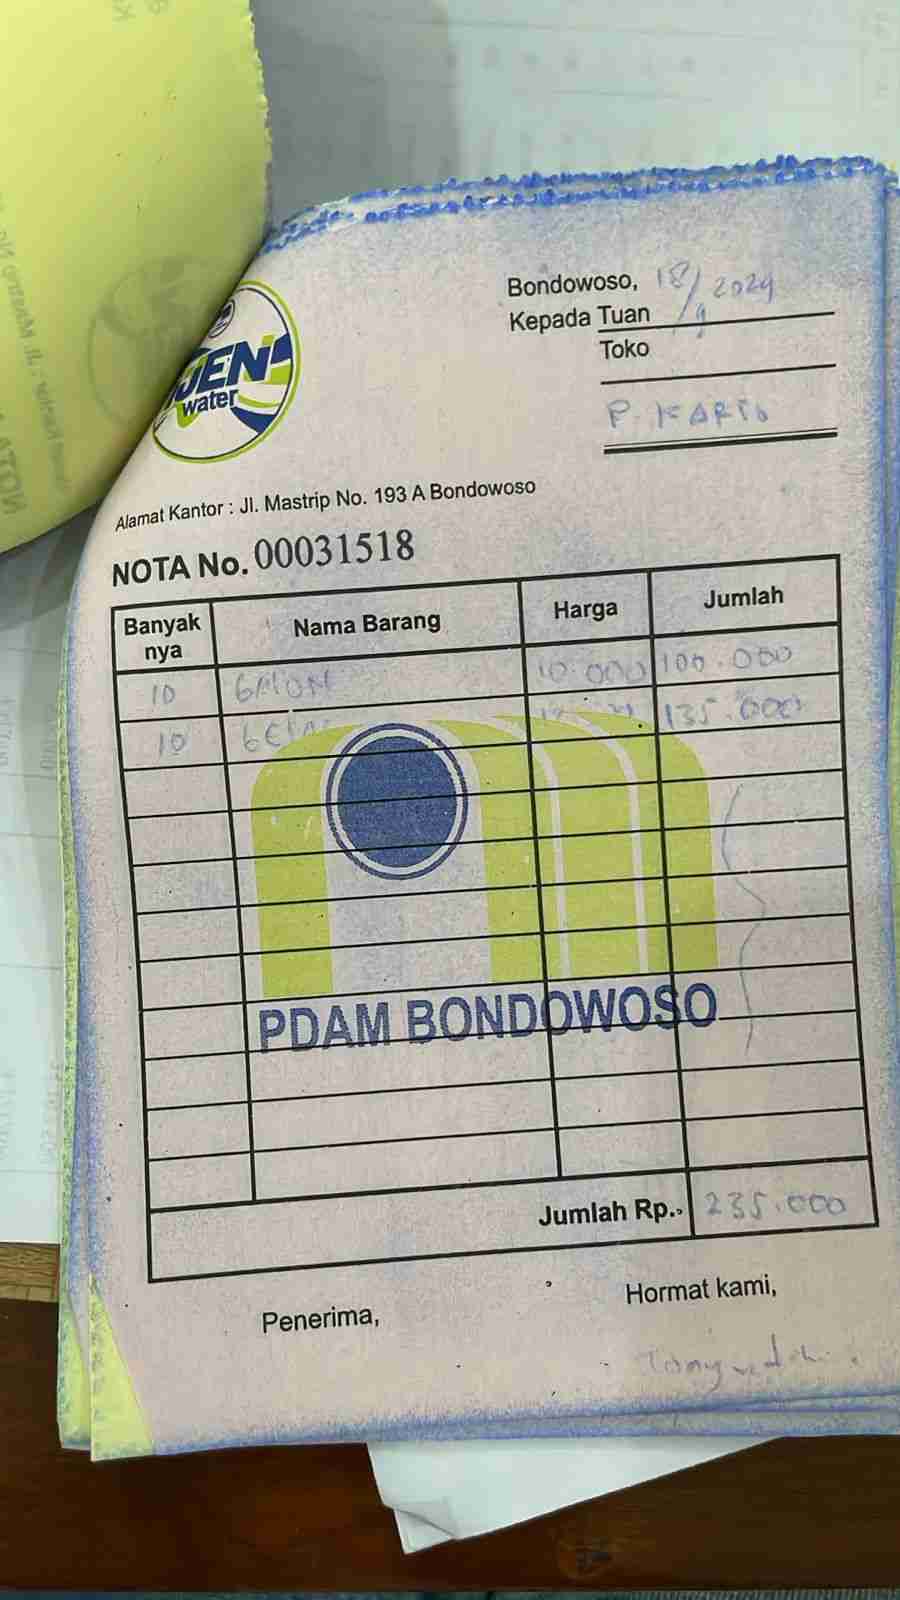 IJEN
water
Bondowoso, 18/9 2024
Kepada Tuan
Toko
P. KARTO
Alamat Kantor : Jl. Mastrip No. 193 A Bondowoso
NOTA No. 00031518
Banyak nya Nama Barang Harga Jumlah
10 GALON 10.000 100.000
10 135.000
PDAM BONDOWOSO
Jumlah Rp. 235.000
Penerima, Hormat kami,